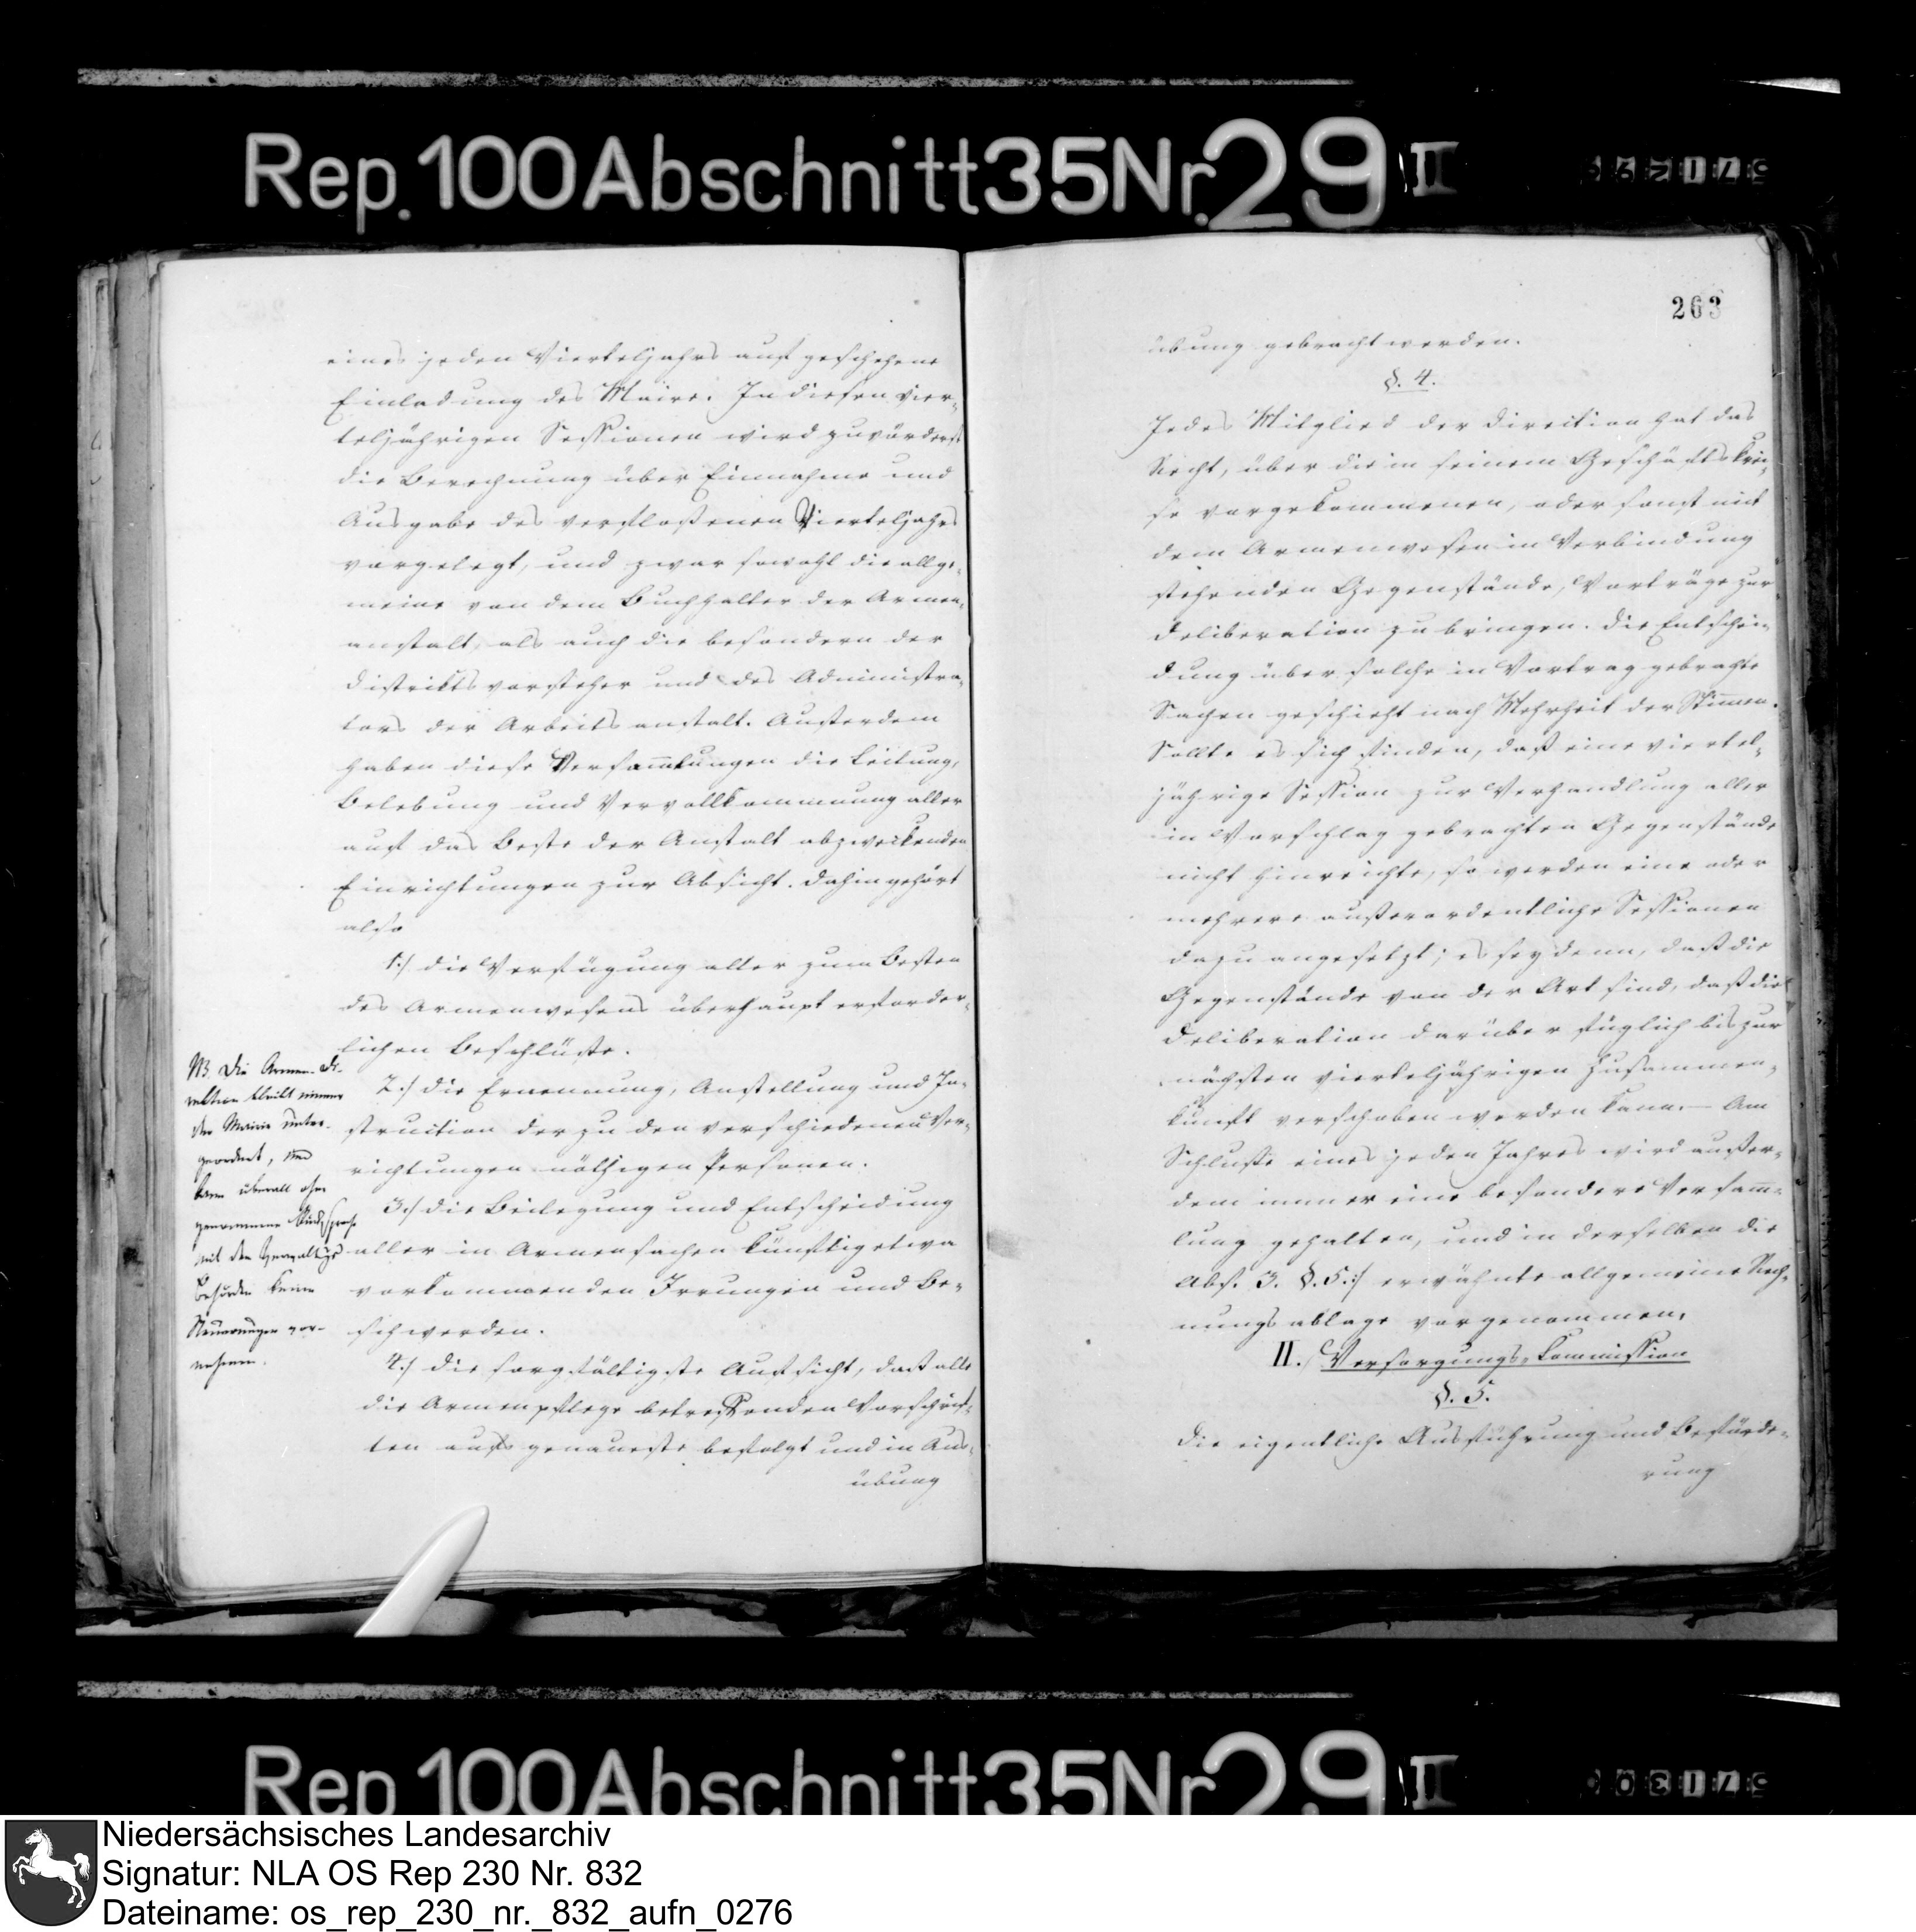 Rep. 100 Abschnitt 35 Nr. 29 II
eines jeden Vierteljahrs auf geschehene
Einladung des Maire. In diesen vier-
teljährigen Sessionen wird zuvörderst
die Berechnung über Einnahme und
Ausgabe des verfloßenen Vierteljahrs
vorgelegt, und zwar sowohl die allge-
meine von dem Buchhalter der Armen-
anstalt, als auch die besondern der
Distriktsvorsteher und des Administra-
tors der Arbeitsanstalt. Ausserdem
haben diese Versam̄lungen die Leitung,
Belebung und Vervollkommnung aller
auf das Beste der Anstalt abzweckenden
Einrichtungen zur Absicht. Dahin gehört
also
1.) die Verfügung aller zum Besten
des Armenwesens überhaupt erforder-
lichen Beschlüsse.
2.) die Ernennung, Anstellung und In-
struction der zu den verschiedenen Ver-
richtungen nöthigen Personen.
3.) die Beilegung und Entscheidung
aller in Armensachen künftig etwa
vorkommenden Irrungen und Be-
schwerden.
4.) die sorgfältigste Aufsicht, daß alle
die Armenpflege betreffenden Vorschrif-
ten aufs genaueste befolgt und in Aus-
übung
NB. Die Armen-Di-
rektion bleibt immer
der Mairie unter-
geordnet, und
kann überall ohne
genommene Rücksprache
mit den
Behörden keine
Neuerungen vor-
nehmen.
263
übung gebracht werden.
§. 4.
Jedes Mitglied der Direction hat das
Recht, über die in seinem Geschäftskrei-
se vorgekommenen, oder sonst mit
dem Armenwesen in Verbindung
stehenden Gegenstände, Vorträge zur
Deliberation zu bringen. Die Entschei-
dung über solche in Vortrag gebrachte
Sachen geschieht nach Mehrheit der Stim̄en.
Sollte es sich finden, daß eine viertel-
jährige Session zur Verhandlung aller
in Vorschlag gebrachten Gegenstände
nicht hinreichte, so werden eine oder
mehrere außerordentliche Sessionen
dazu angesetzt; es sey denn, daß die
Gegenstände von der Art sind, daß die
Deliberation darüber füglich bis zur
nächsten vierteljährigen Zusammen-
kunft verschoben werden kann. — Am
Schlusse eines jeden Jahres wird außer-
dem immer eine besondere Versam̄-
lung gehalten, und in derselben die
Abs. 3. §. 5. :/ erwähnte allgemeine Rech-
nungsablage vorgenommen.
II. Versorgungs-Kommission
§. 5.
Die eigentliche Ausführung und Beförde-
rung
Rep. 100 Abschnitt 35 Nr. 29 II
Niedersächsisches Landesarchiv
Signatur: NLA OS Rep 230 Nr. 832
Dateiname: os_rep_230_nr._832_aufn_0276